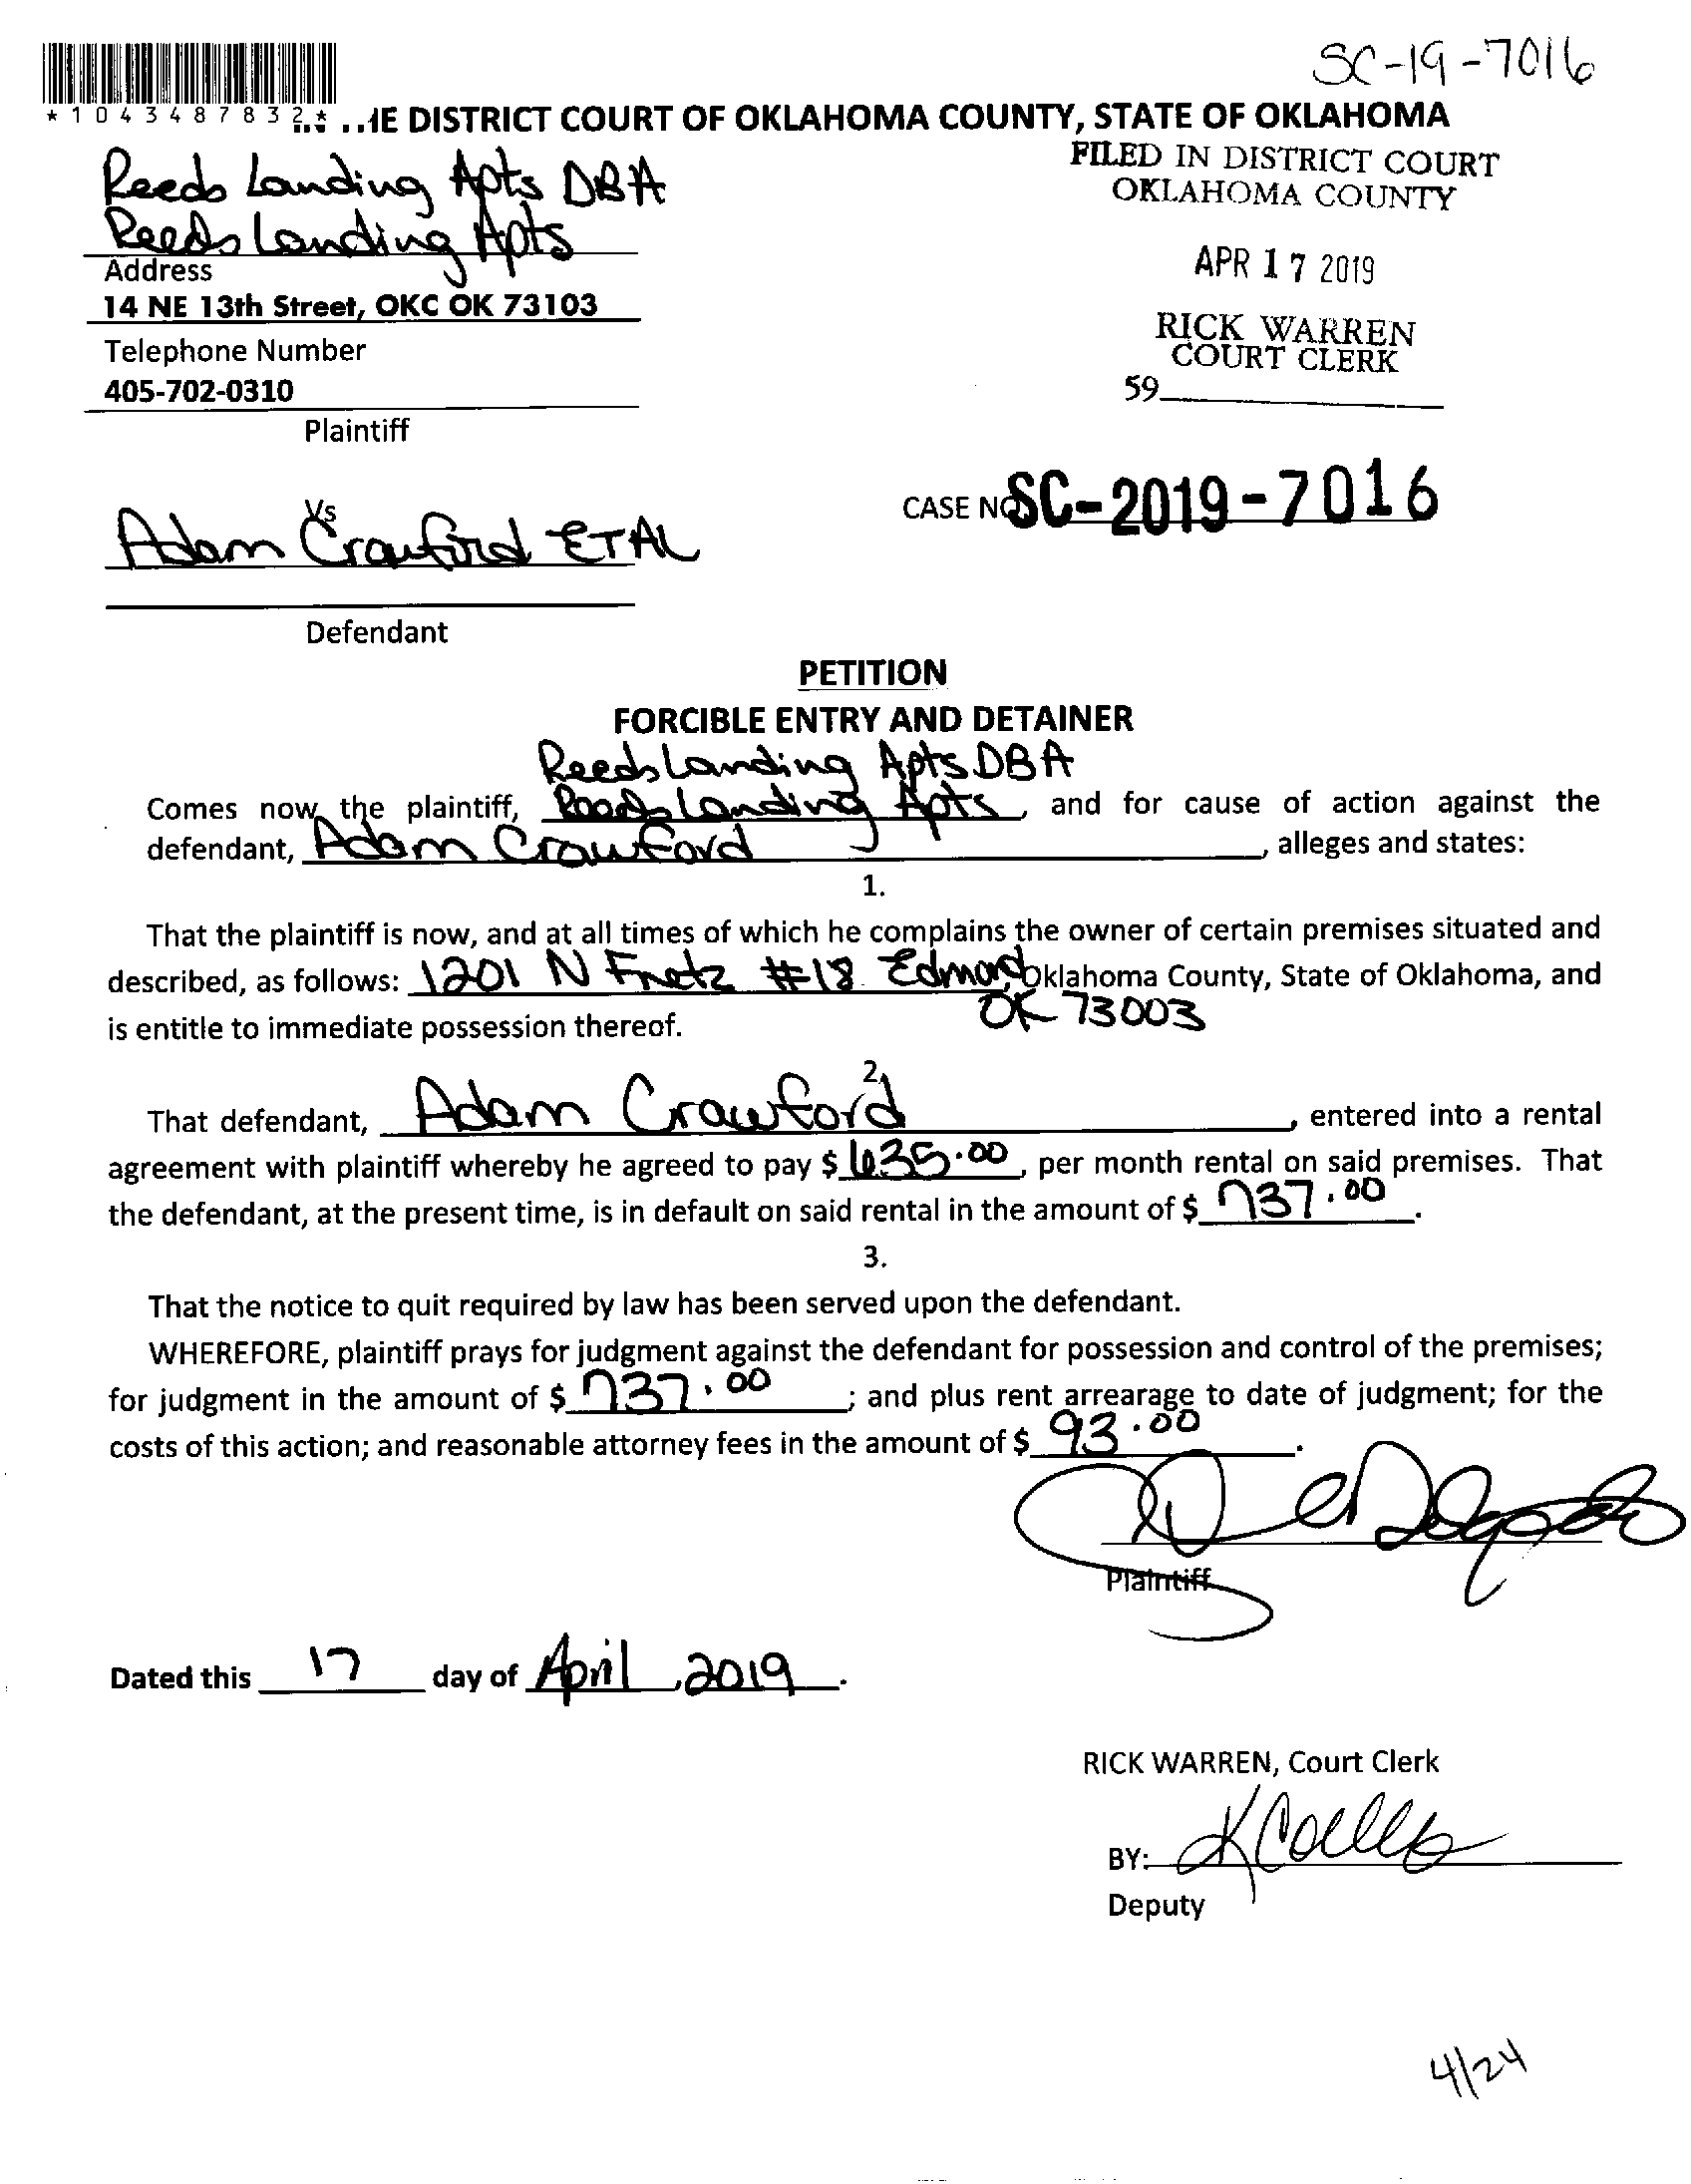 SC-19-7016
*1043487832*
..IE DISTRICT COURT OF OKLAHOMA COUNTY, STATE OF OKLAHOMA
FILED IN DISTRICT COURT
OKLAHOMA COUNTY
Reeds Landing Apts DBA
Reeds Landing Apts
APR 17 2019
Address
14 NE 13th Street, OKC OK 73103
RICK WARREN
COURT CLERK
Telephone Number
405-702-0310
59
Plaintiff
Vs
CASE NO. SC-2019-7016
Adam Crawford ETAL
Defendant
PETITION
FORCIBLE ENTRY AND DETAINER
Reeds Landing Apts DBA
Comes now, the plaintiff, Reeds Landing Apts, and for cause of action against the
defendant, Adam Crawford, alleges and states:
1.
That the plaintiff is now, and at all times of which he complains the owner of certain premises situated and
described, as follows: 1201 N Fretz #18 Edmond, Oklahoma County, State of Oklahoma, and
OK 73003
is entitle to immediate possession thereof.
2.
That defendant, Adam Crawford, entered into a rental
agreement with plaintiff whereby he agreed to pay $ 635.00, per month rental on said premises. That
the defendant, at the present time, is in default on said rental in the amount of $ 737.00.
3.
That the notice to quit required by law has been served upon the defendant.
WHEREFORE, plaintiff prays for judgment against the defendant for possession and control of the premises;
for judgment in the amount of $ 737.00; and plus rent arrearage to date of judgment; for the
costs of this action; and reasonable attorney fees in the amount of $ 93.00.
Plaintiff
Dated this 17 day of April, 2019.
RICK WARREN, Court Clerk
BY:
Deputy
4/24